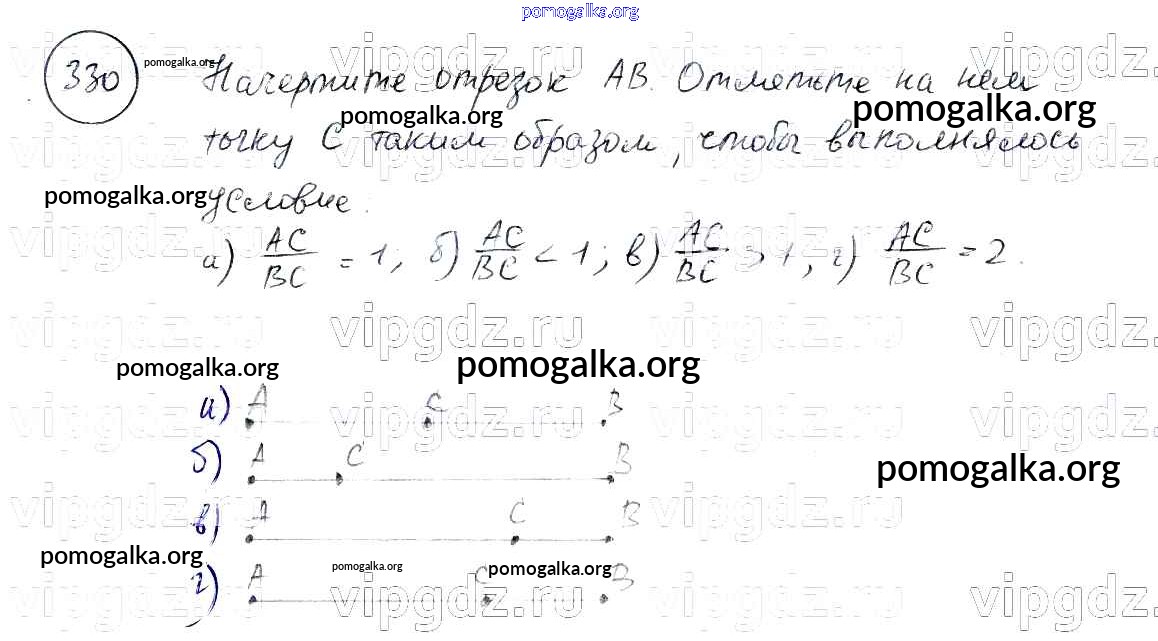 pomogalka.org
330 pomogalka.org Начертите отрезок AB. Отметьте на нём
pomogalka.org pomogalka.org
точку C таким образом, чтобы выполнялось
pomogalka.org условие:
а) AC/BC = 1; б) AC/BC < 1; в) AC/BC > 1, г) AC/BC = 2.
vipgdz.ru vipgdz.ru vipgdz.ru vipgdz.ru
pomogalka.org pomogalka.org
а) A C B
б) A C B
pomogalka.org
в) A C B
pomogalka.org pomogalka.org pomogalka.org
г) A C B